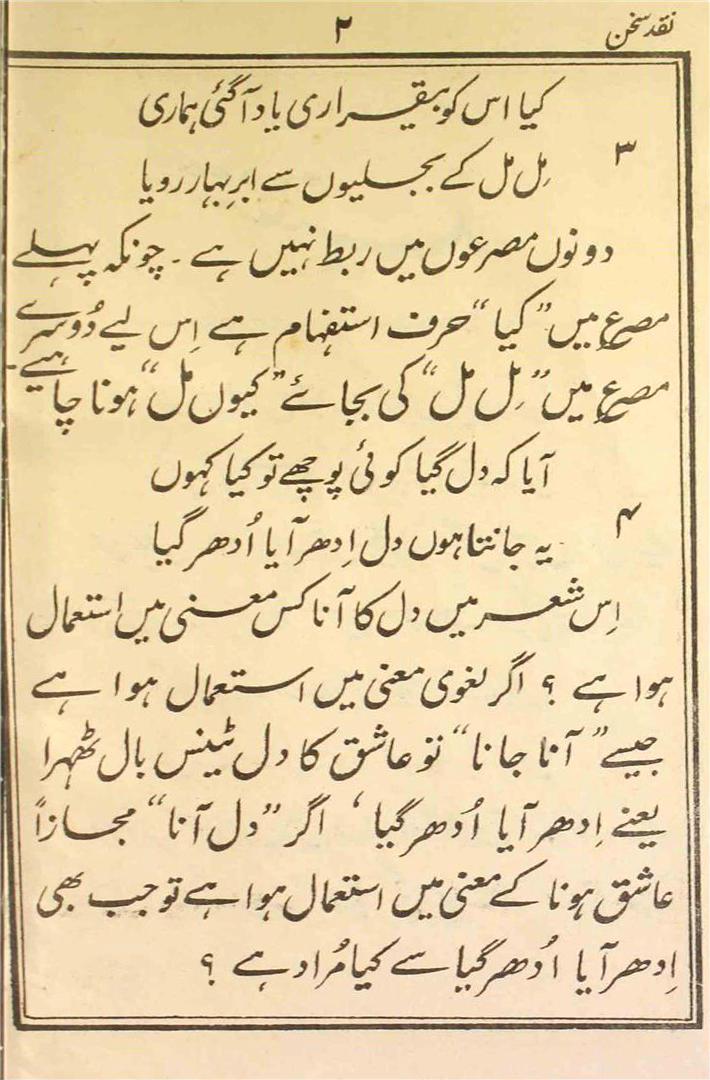 نقد سخن
۲
کیا اس کو بیقراری یاد آ گئی ہماری
۳
مِل مل کے بجلیوں سے ابرِ بہار رویا
دونوں مصرعوں میں ربط نہیں ہے ۔ چونکہ پہلے
مصرع میں ”کیا“ حرف استفہام ہے اِس لیے دُوسرے
مصرع میں ”مِل مل“ کی بجائے ”کیوں مل“ ہونا چاہیے۔
آیا کہ دل گیا کوئی پوچھے تو کیا کہوں
۴
یہ جانتا ہوں دل اِدھر آیا اُدھر گیا
اِس شعر میں دل کا آنا کس معنی میں استعمال
ہوا ہے ؟ اگر لغوی معنی میں استعمال ہوا ہے
جیسے ”آنا جانا“ تو عاشق کا دل ٹینس بال ٹھہرا
یعنے اِدھر آیا اُدھر گیا ، اگر ”دل آنا“ مجازاً
عاشق ہونا کے معنی میں استعمال ہوا ہے تو جب بھی
اِدھر آیا اُدھر گیا سے کیا مُراد ہے ؟